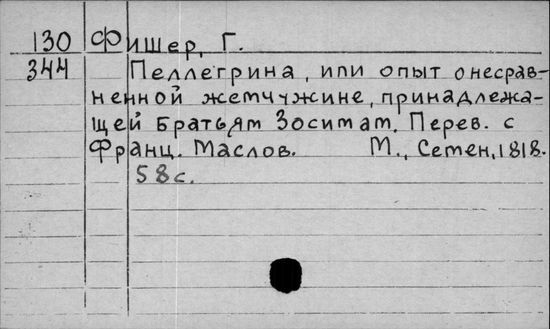 130 Фишер, Г.
344 Пеллегрина, или опыт о несрав-
ненной жемчужине, принадлежа-
щей Братьям Зосимам. Перев. с
Франц. Маслов. М., Семен, 1818.
58 с.